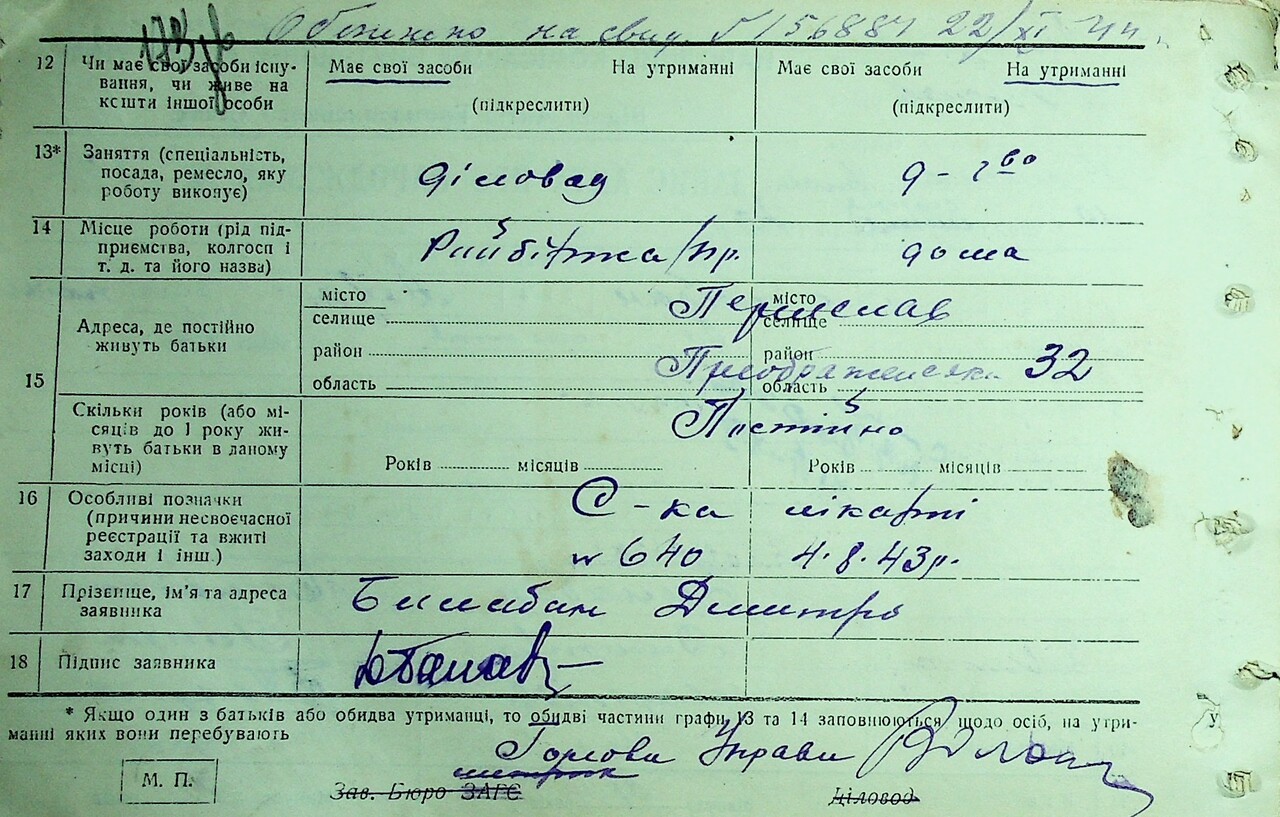 173 др
Обмінено на свид. № 156881 22/XI 44 р.
12 Чи має свої засоби існу-
вання, чи живе на
кошти іншої особи
Має свої засоби На утриманні
(підкреслити)
Має свої засоби На утриманні
(підкреслити)
13* Заняття (спеціальність,
посада, ремесло, яку
роботу виконує)
діловод
д-гво
14 Місце роботи (рід під-
приємства, колгосп і
т. д. та його назва)
Райбіржа/пр.
дома
15 Адреса, де постійно
живуть батьки
місто
селище
район
область
місто
селище
район
область
Переяслав
Преображенська 32
Скільки років (або мі-
сяців до 1 року жи-
вуть батьки в даному
місці)
Постійно
Років місяців
Років місяців
16 Особливі позначки
(причини несвоєчасної
реєстрації та вжиті
заходи і інш.)
С-ка лікарні
№ 640 4.8.43р.
17 Прізвище, ім'я та адреса
заявника
Балабан Дмитро
18 Підпис заявника
* Якщо один з батьків або обидва утриманці, то обидві частини графи 13 та 14 заповнюються щодо осіб, на утри-
манні яких вони перебувають
Голова Управи
М. П.
Зав. Бюро ЗАГС
Діловод